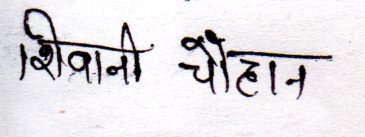 शिवानी चौहान